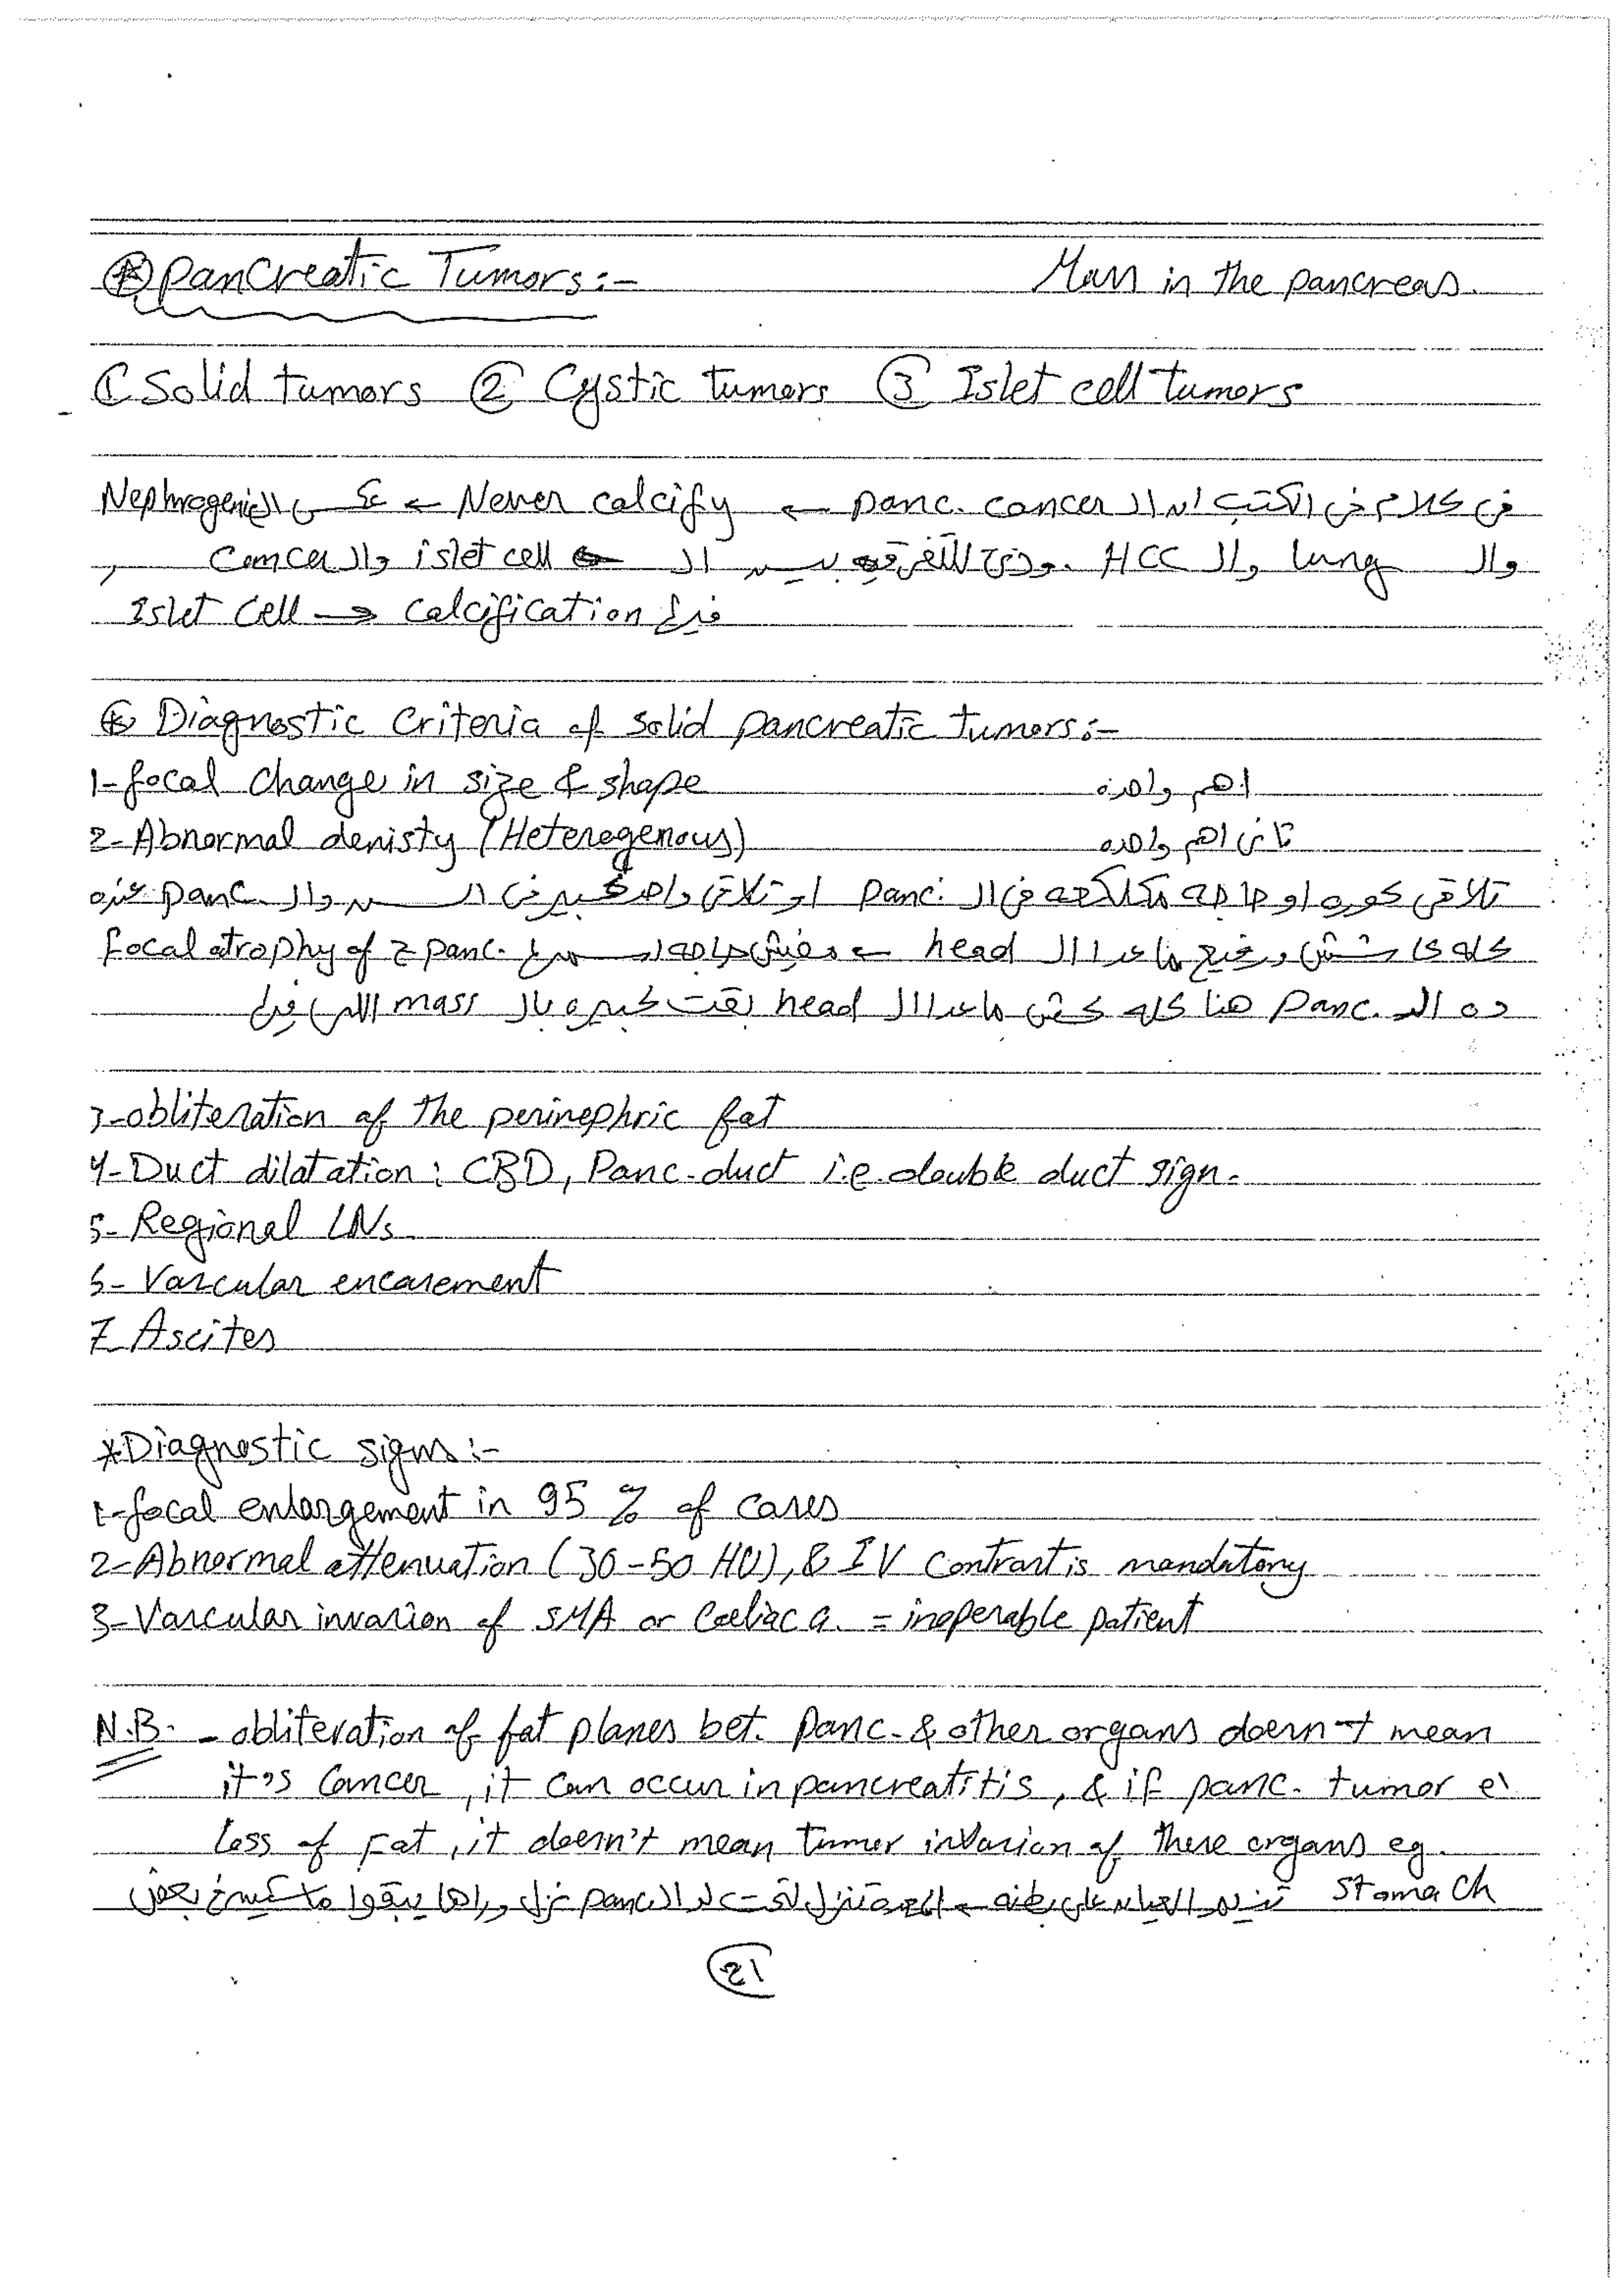 * Pancreatic Tumors:- Mass in the pancreas.
① Solid tumors ② Cystic tumors ③ Islet cell tumors
في كلام في الكتب ان ال panc. cancer ← Never calcify ← عكس ال Nephrogenic
وال lung وال HCC ودي للتفرقه بين ال islet cell وال Cancer ,
Islet Cell → Calcification فيها
* Diagnostic Criteria of solid pancreatic tumors:-
1- focal change in size & shape اهم واحدة
2- Abnormal denisty (Heterogenous) تاني اهم واحده
تلاقي كوره او حاجه مكلكعه في ال panc. او تلاقي واحد كبير في ال سن وال panc. عنده
كله كاشش ورفيع ما عدا ال head ← مفيش حاجه اسمها focal atrophy of z panc.
ده ال panc. هنا كله كش ماعدا ال head بقت كبيره بال mass اللي فيها
3- obliteration of the perinephric fat
4- Duct dilatation: CBD, Panc. duct i.e. double duct sign.
5- Regional LNs.
6- Vascular encasement
7- Ascites
*Diagnostic signs:-
1- focal enlargement in 95 % of cases
2- Abnormal attenuation (30-50 HU), & IV Contrast is mandatory
3- Vascular invasion of SMA or Coeliac a. = inoperable patient
N.B: - obliteration of fat planes bet. Panc. & other organs doesn't mean
it's Cancer, it can occur in pancreatitis, & if panc. tumor e\
loss of fat, it doesn't mean tumor invasion of these organs eg.
Stomach تنيم العيان على بطنه ← المعدة تنزل لتحت وال panc. تنزل
21